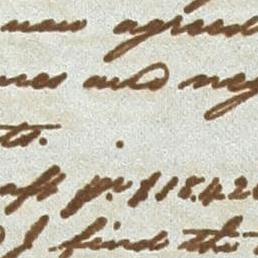 new agreed
and neg
ts.
aft pr. $18.42
I find the